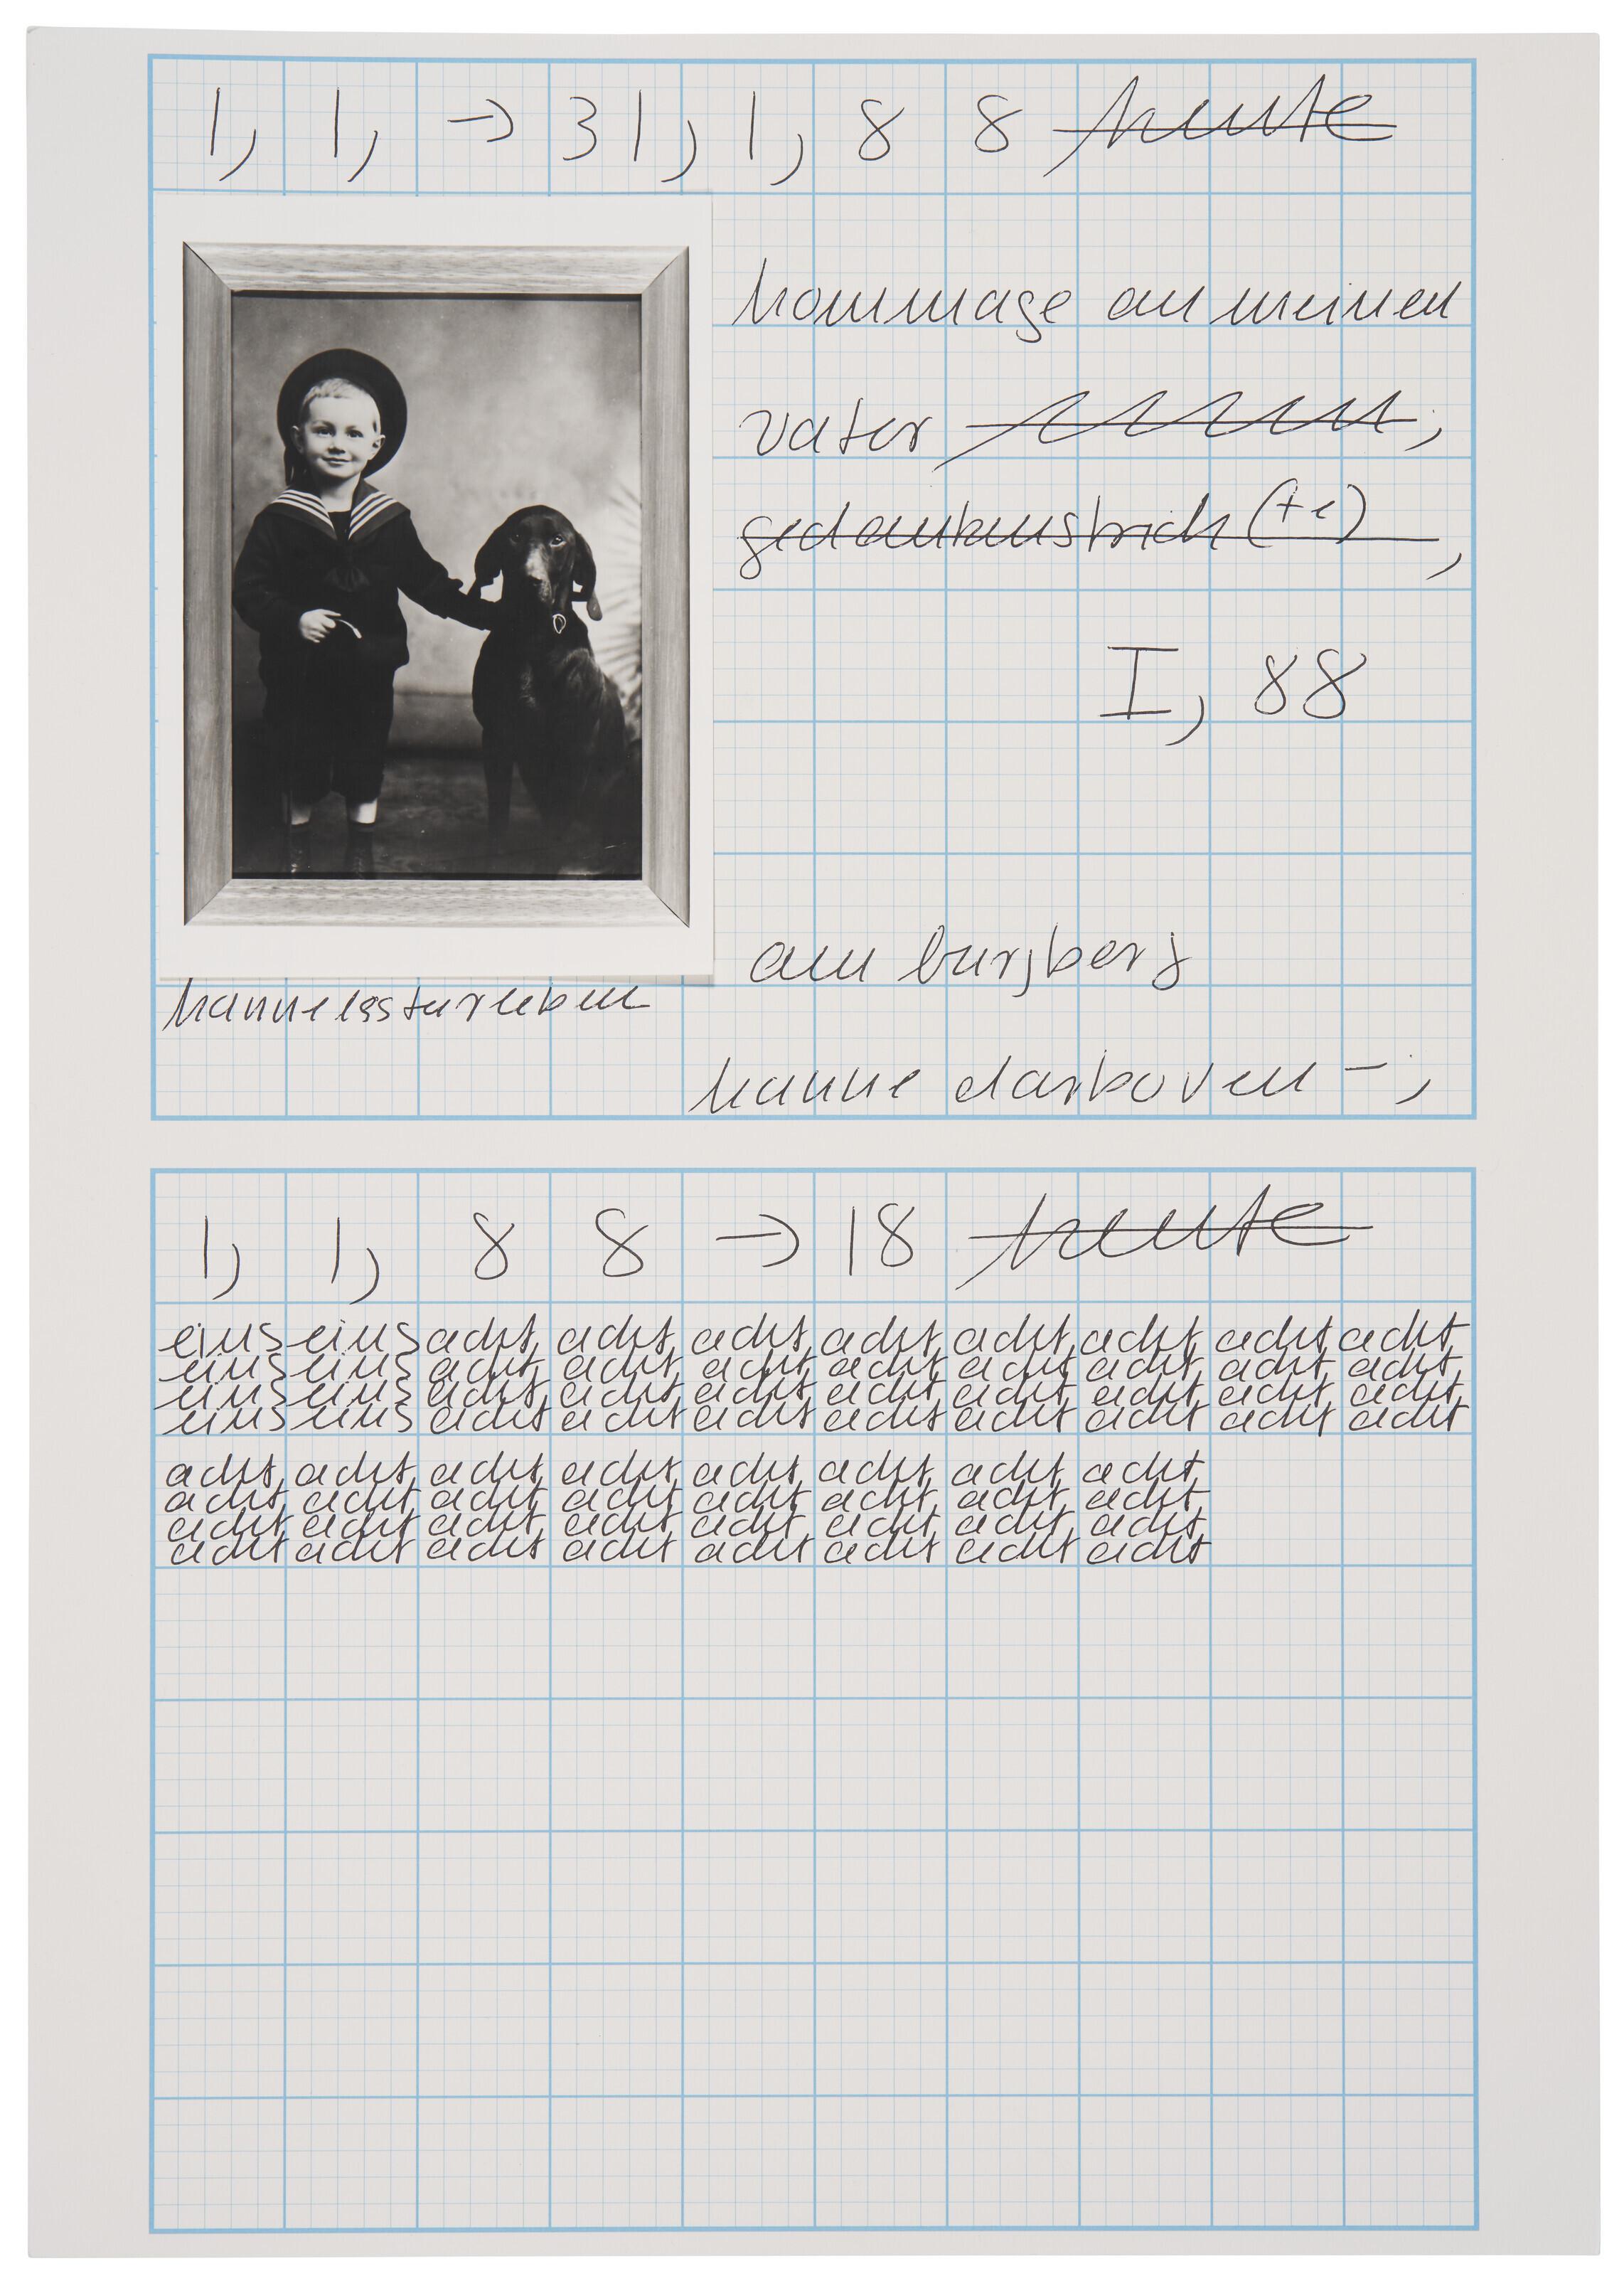 1, 1, → 31, 1, 8 8 heute
hommage an meinen
vater
gedankenstrich (+e),
I, 88
am burgberg
hanne darboven –,
1, 1, 8 8 → 18 heute
eins eins acht, acht, acht, acht, acht, acht, acht, acht,
eins eins acht, acht, acht, acht, acht, acht, acht, acht,
eins eins acht, acht, acht, acht, acht, acht, acht, acht,
eins eins acht acht acht acht acht acht acht acht
acht, acht, acht, acht, acht, acht, acht, acht,
acht, acht, acht, acht, acht, acht, acht, acht,
acht, acht, acht, acht, acht, acht, acht, acht,
acht acht acht acht acht acht acht acht